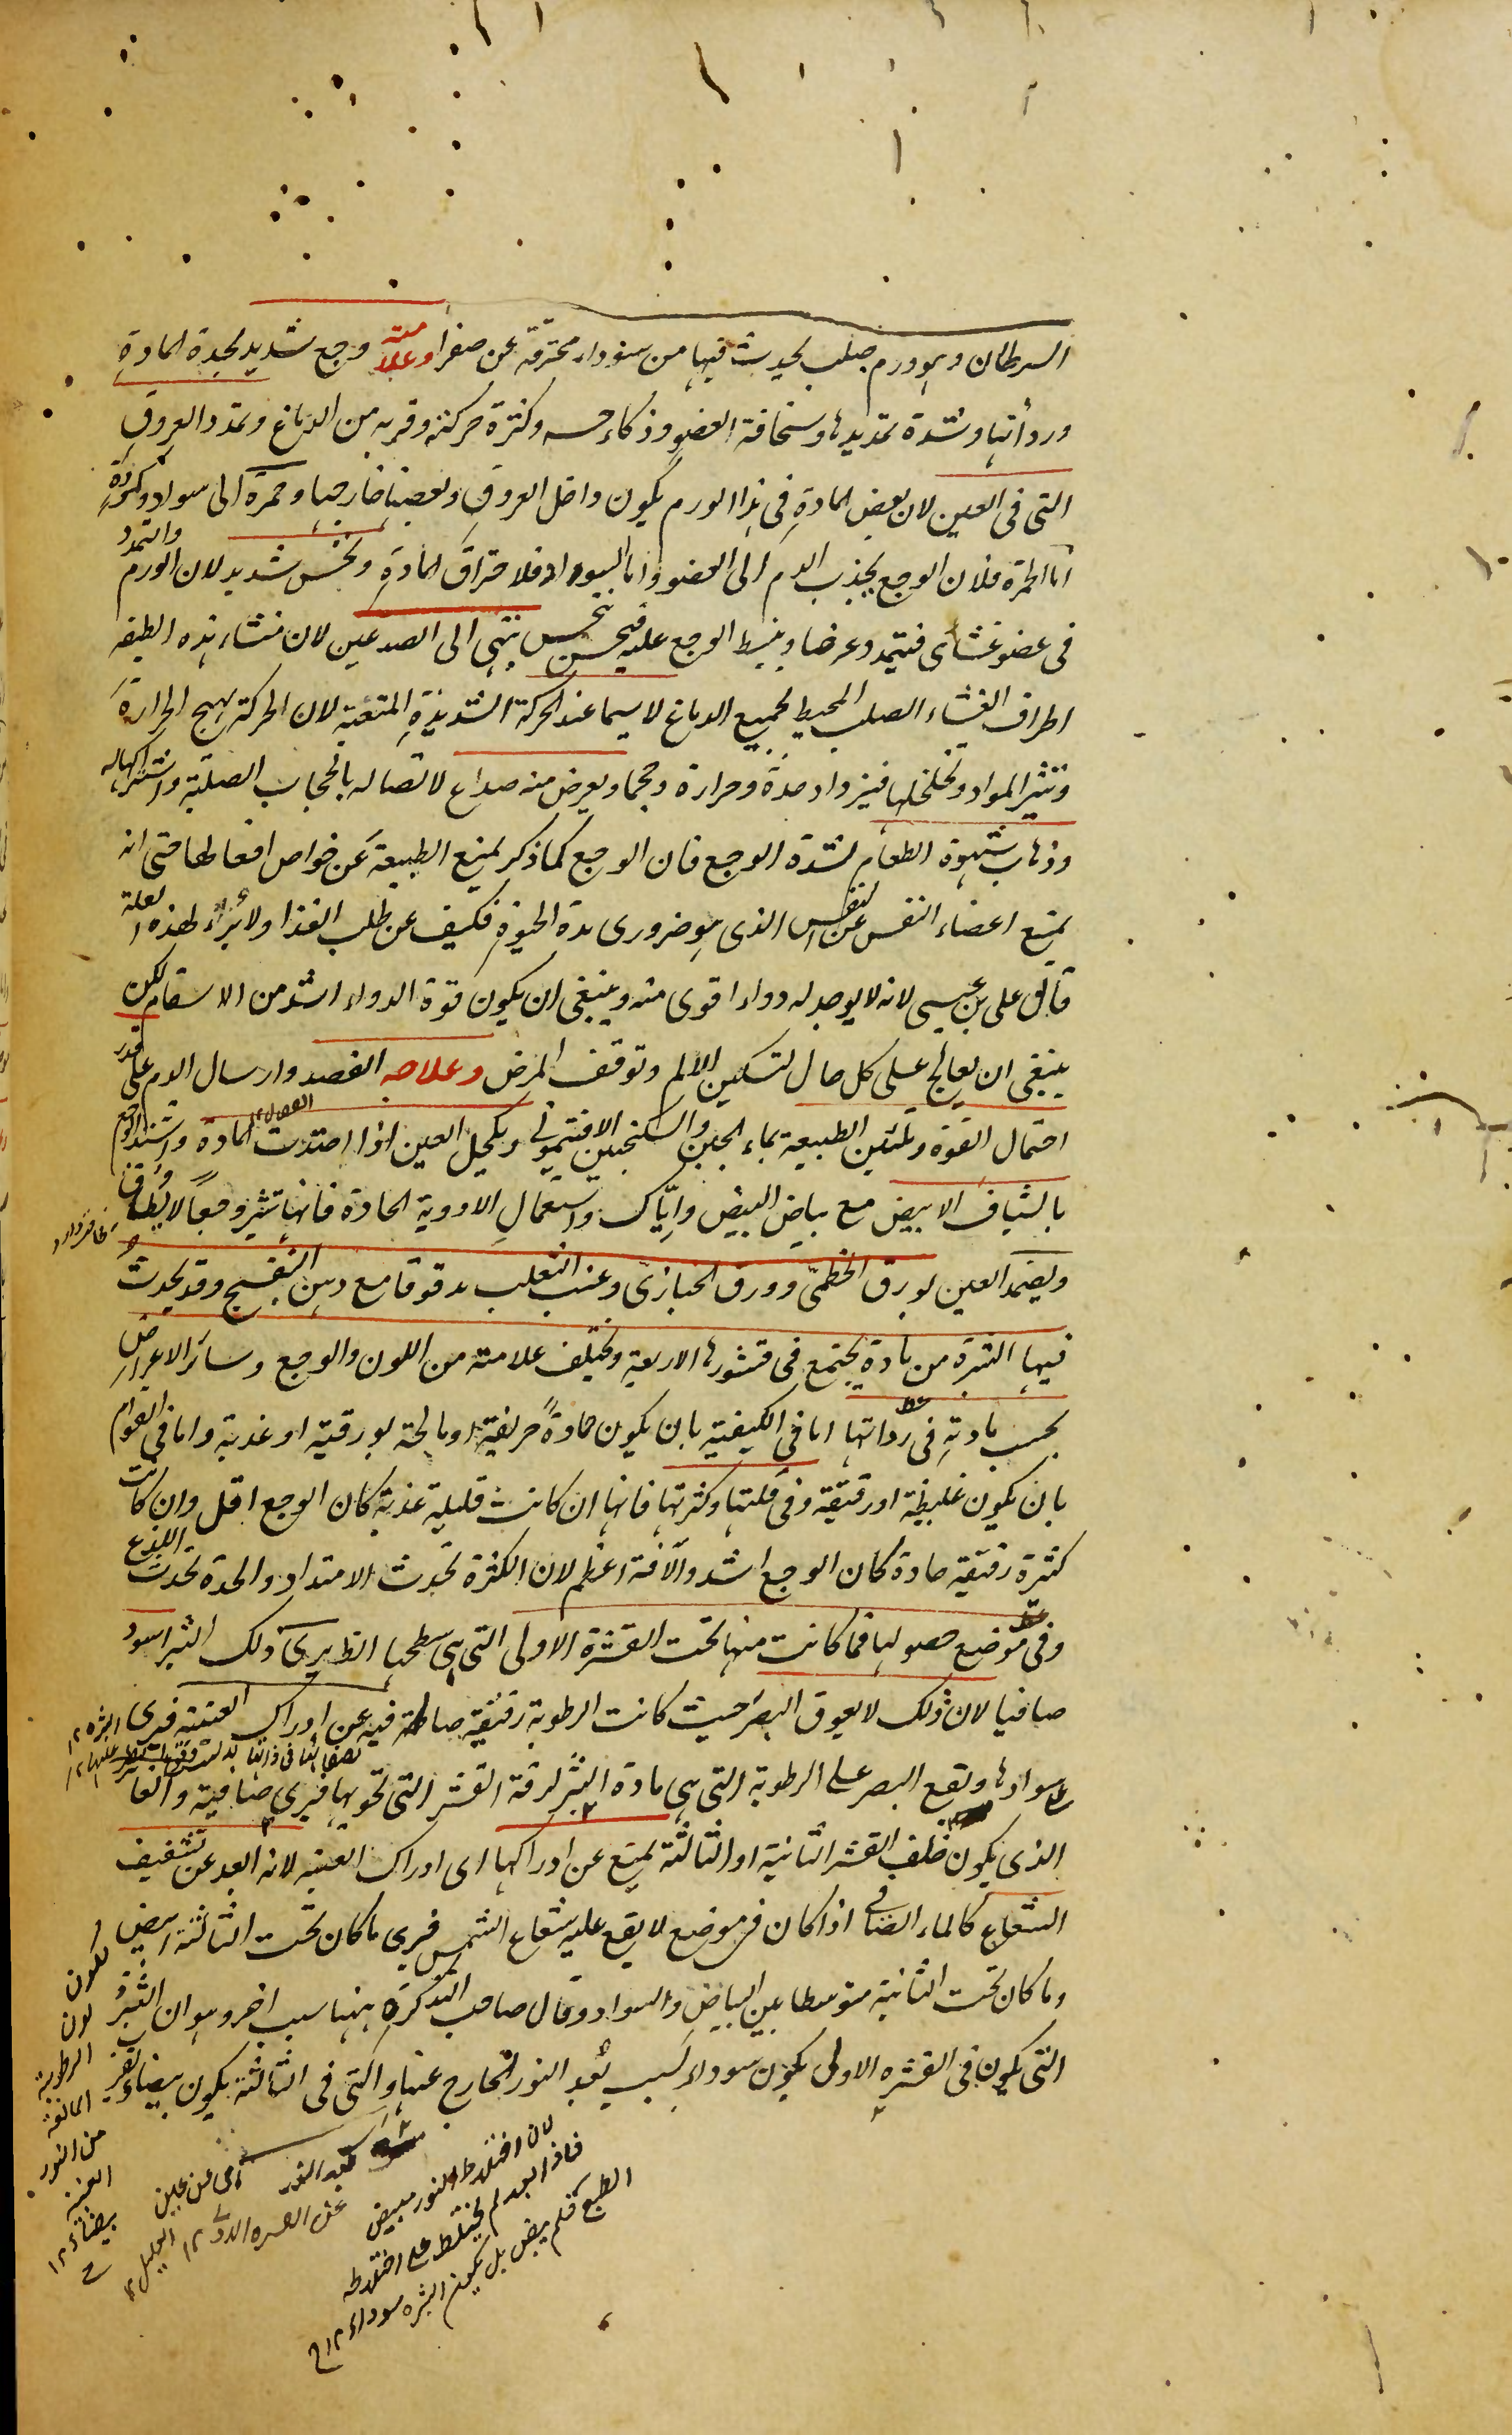 السرطان وهو ورم صلب يحدث فيها من سوداء محترقة عن صفراء وعلامته وجع شديد لحدة المادة
وردأتها وشدة تمديدها وسخافة العضو وذكاء حسه وكثرة حركته وقربه من الدماغ وتمدد العروق
التى فى العين لان بعض المادة فى هذا الورم يكون داخل العروق وبعضها خارجها وحمرة الى سواد وكمودة
اما الحمرة فلان الوجع يجذب الدم الى العضو واما السواد فلاحتراق المادة ونخس شديد لان الورم والتمدد
فى عضو غشائى فيتمدد عرضا وينبسط الوجع عليه فيحس بنخس ينتهى الى الصدغين لان منشاء هذه الطبقه
اطراف الغشاء الصلب المحيط لجميع الدماغ لاسيما عند الحركة الشديدة المتعبة لان الحركة يهيج الحرارة
وتثير المواد وتخلخلها فيزداد حدة وحرارة وحجما ويعرض منه صداع لاتصاله بالحجاب الصلبة واشتراكها له
وذهاب شهوة الطعام لشدة الوجع فان الوجع كما ذكر يمنع الطبيعة عن خواص افعالها حتى انه
يمنع اعضاء النفس عن التنفس الذى هو ضرورى مدة الحيوة فكيف عن طلب الغذا ولا برأ لهذه العلة
قال على بن عيسى لانه لا يوجد له دواء اقوى منه وينبغى ان يكون قوة الدواء اشد من الاسقام لكن
ينبغى ان يعالج على كل حال لتسكين الالم وتوقف المرض وعلاجه الفصد وارسال الدم على قدر
احتمال القوة وتليين الطبيعة بماء الجبن والسكنجبين الافتيمونى ويكحل العين اذا احتدت المادة واشتد الوجع
بالشياف الابيض مع بياض البيض واياك واستعمال الادوية الحادة فانها تثير وجعا لا يطاق
ويضمد العين بورق الخطمى وورق الخبازى وعنب الثعلب مدقوقا مع دهن البنفسج وقد يحدث
فيها البثرة من مادة يجتمع فى قشورها الاربعة ويختلف علامته من اللون والوجع وسائر الاعراض
بحسب مادته فى رداتها اما فى الكيفية بان يكون حادة حريفة او مالحة بورقية او عذبة واما فى القوام
بان يكون غليظة او رقيقة وفى قلتها وكثرتها فانها ان كانت قليلة عذبة كان الوجع اقل وان كانت
كثيرة رقيقة حادة كان الوجع اشد والآفة اعظم لان الكثرة تحدث الامتداد والحدة تحدث اللذع
وفى موضع حصولها فما كانت منها تحت القشرة الاولى التى هى سطحها الظاهر يرى ذلك البثر اسود
صافيا لان ذلك لا يعوق البصر حيث كانت الرطوبة رقيقة صافية فيه عن ادراك العنبية فيرى البثره ١٢
على سوادها ويقع البصر على الرطوبة التى هى مادة البثر لرقة القشر التى تحويها فيرى صافية والعا
الذى يكون خلف القشر الثانية او الثالثة يمنع عن ادراكها اى ادراك العنبية لانه ابعد عن تشفيف
الشعاع كالماء الصافى اذا كان فى موضع لا يقع عليه شعاع الشمس فيرى ما كان تحت الثالثة ابيض
وما كان تحت الثانية متوسطا بين البياض والسواد وقال صاحب التذكرة ههنا سبب اخر وهو ان البثر
التى يكون فى القشره الاولى يكون سوداء بسبب بعد النور الخارج عنها والتى فى الثالثة يكون بيضاء لقرب
لون
الرطوبة
المانعة
من النور
العنبية
بيضاء ١٢
لان اختلاط النور يبيض
فاذا بعد لم يختلط